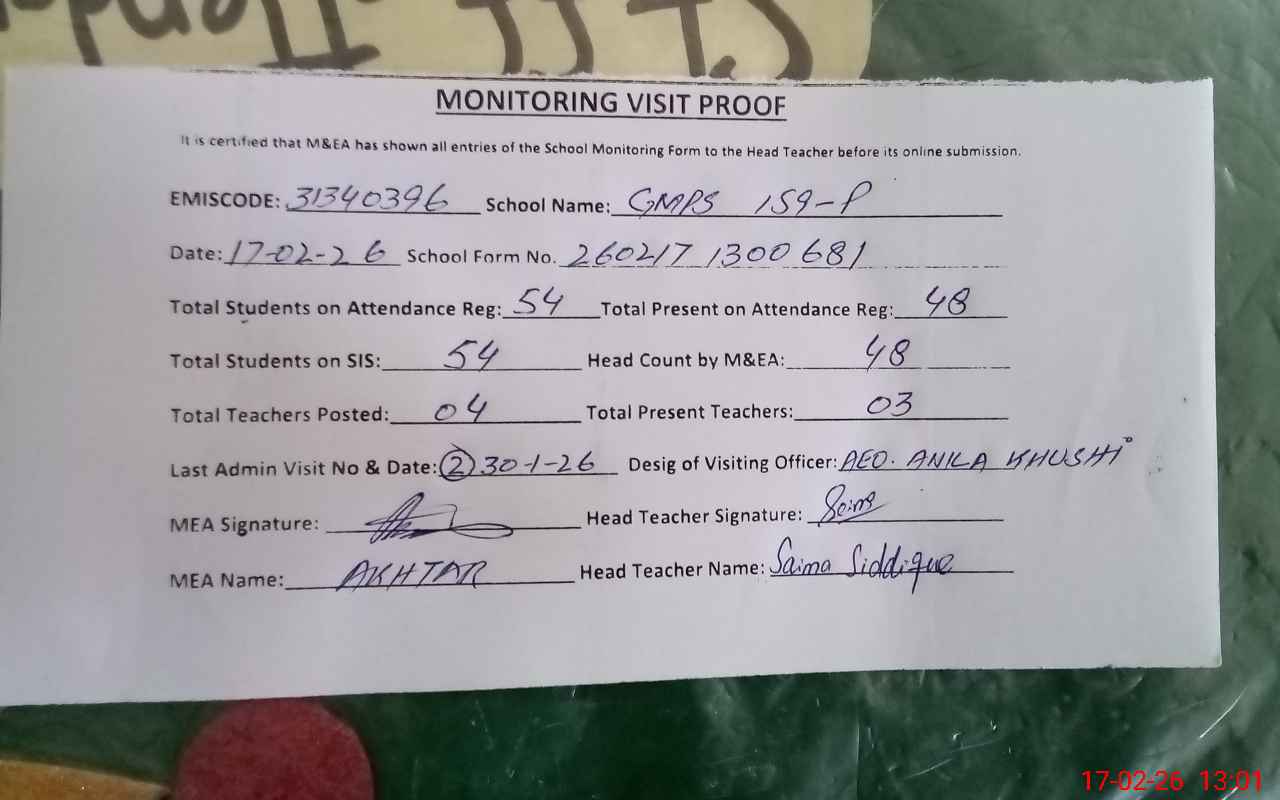 MONITORING VISIT PROOF
It is certified that M&EA has shown all entries of the School Monitoring Form to the Head Teacher before its online submission.
EMISCODE: 31340396 School Name: GMPS 159-P
Date: 17-02-26 School Form No. 260217 1300 681
Total Students on Attendance Reg: 54 Total Present on Attendance Reg: 48
Total Students on SIS: 54 Head Count by M&EA: 48
Total Teachers Posted: 04 Total Present Teachers: 03
Last Admin Visit No & Date: (2) 30-1-26 Desig of Visiting Officer: AEO. ANILA KHUSHI
MEA Signature: Head Teacher Signature: Saima
MEA Name: AKHTAR Head Teacher Name: Saima Siddique
17-02-26 13:01